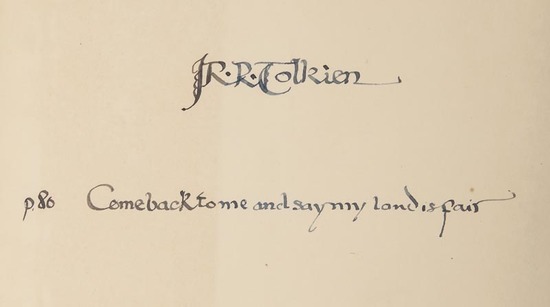 J.R.R. Tolkien
p.80 Come back to me and say my land is fair